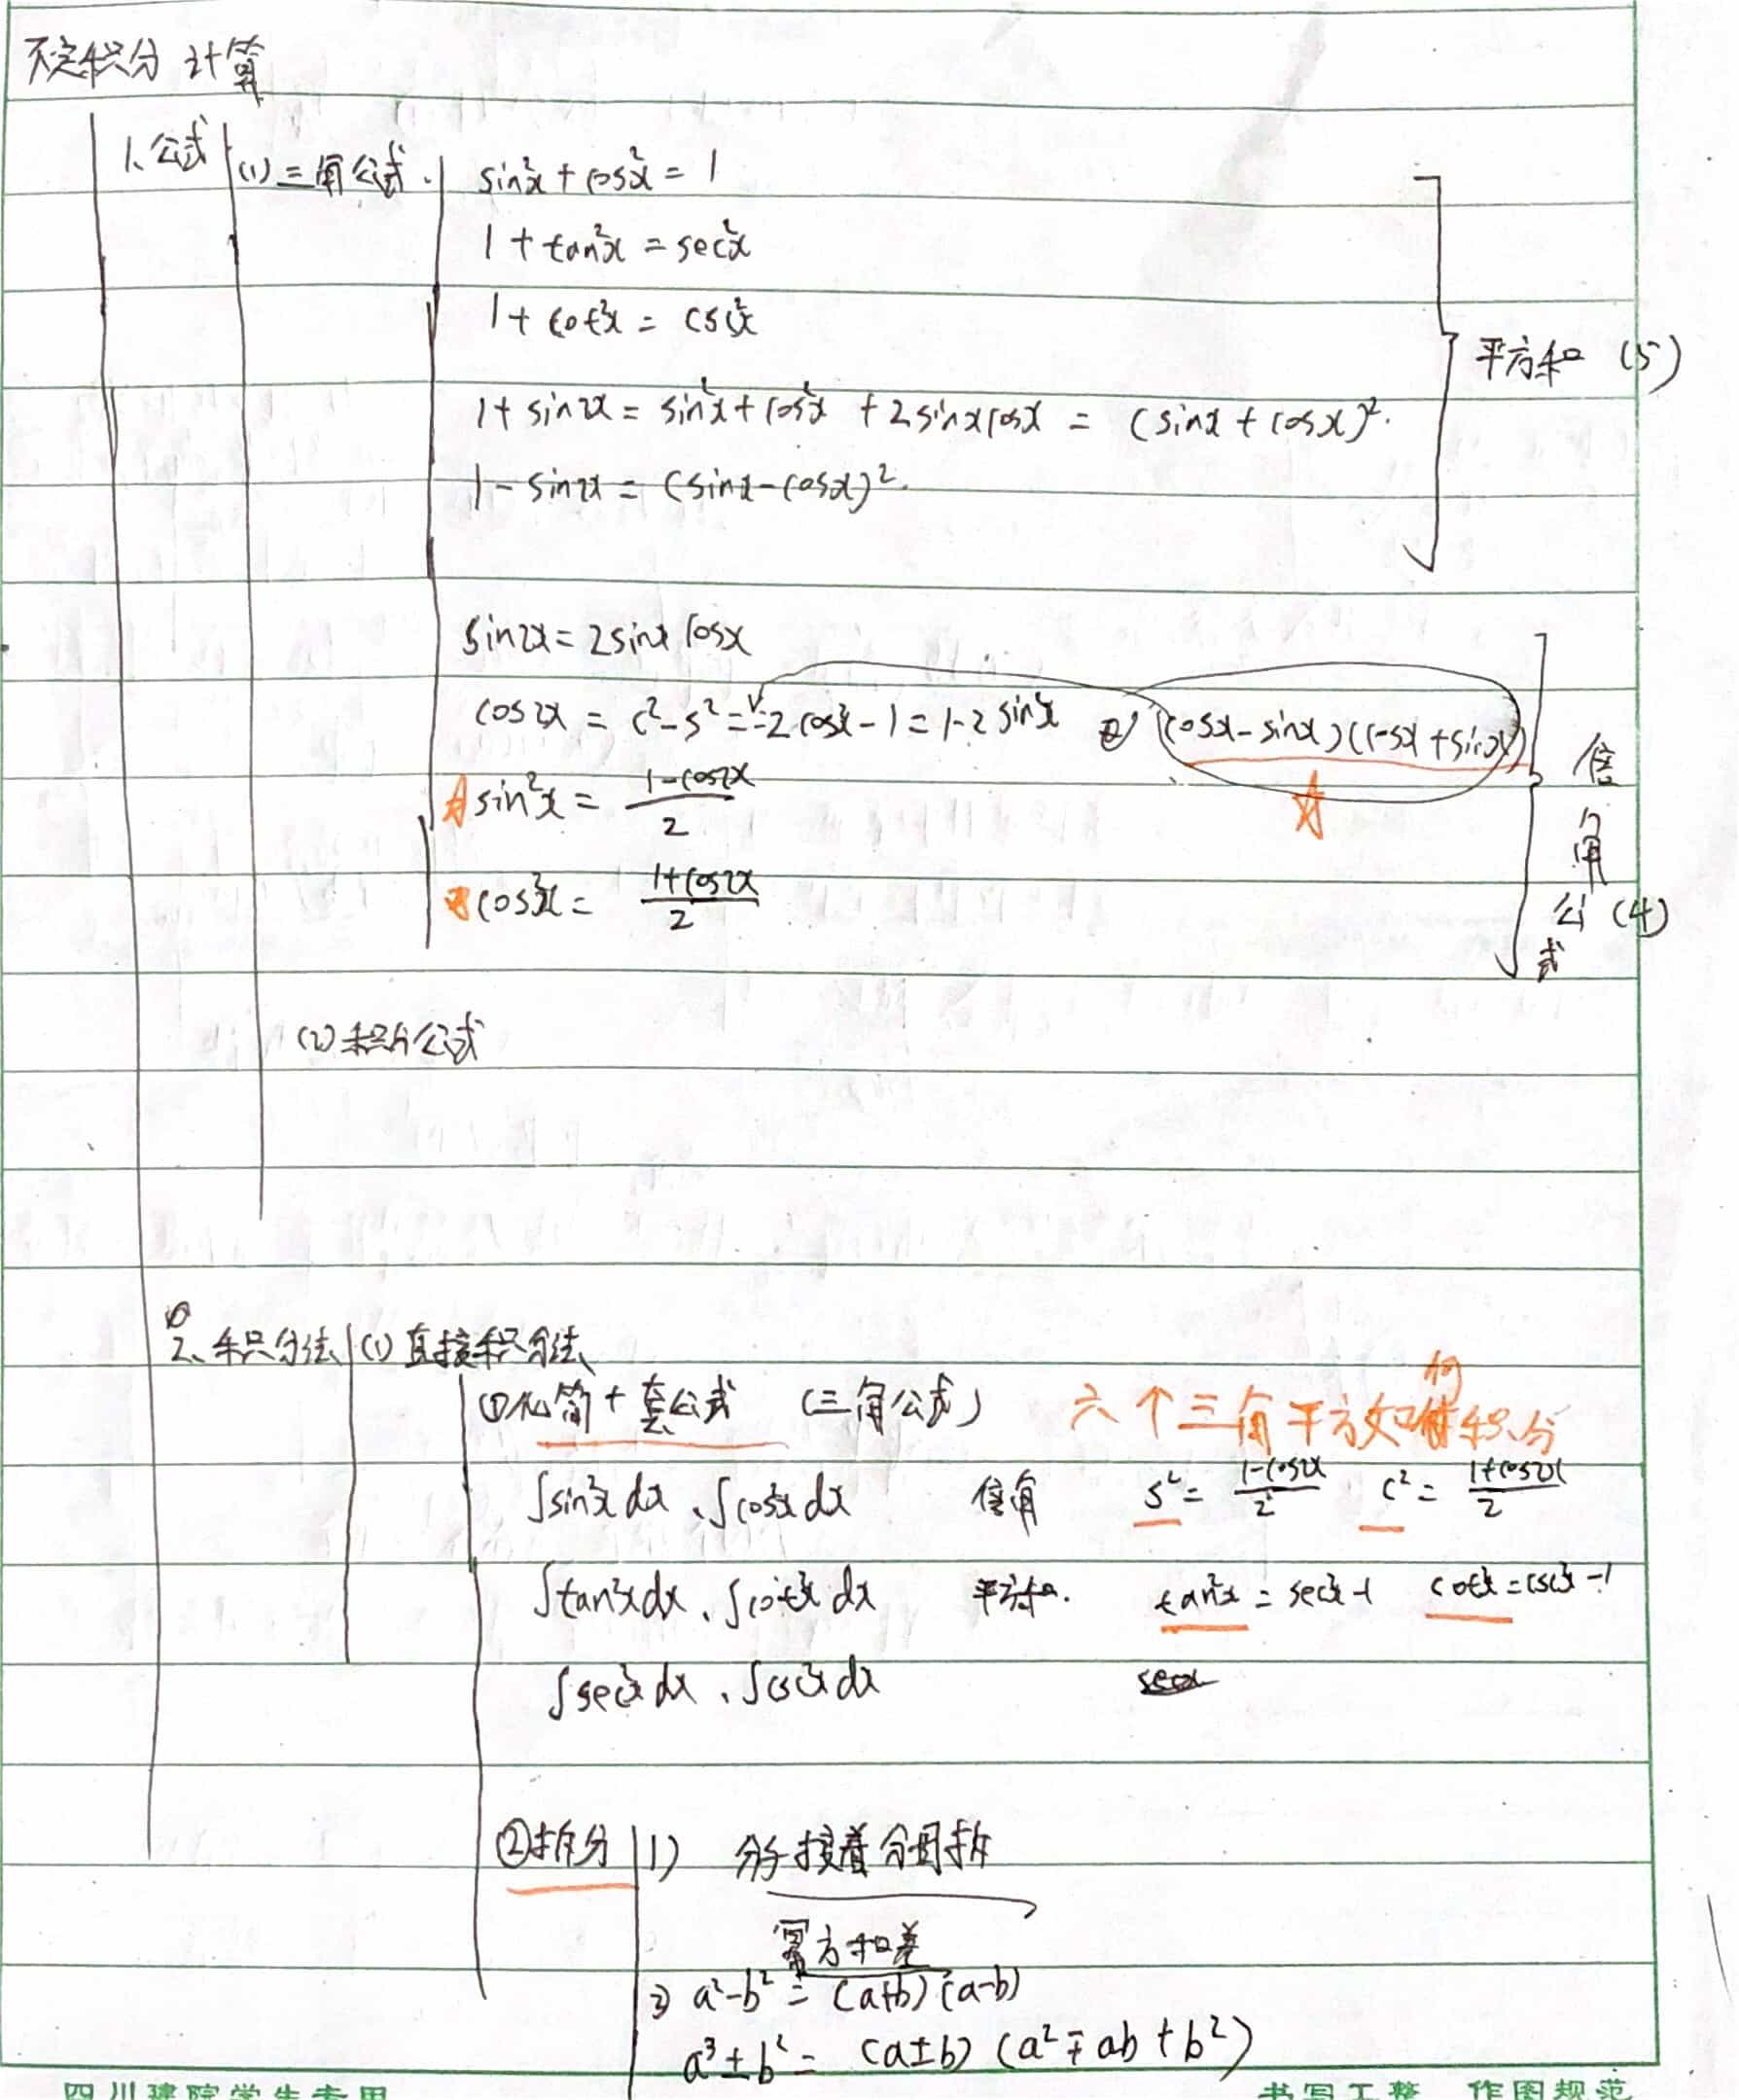 不定积分 计算
1、公式 (1) 三角公式. sin²x + cos²x = 1
1 + tan²x = sec²x
1 + cot²x = csc²x
平方和 (5)
1 + sin2x = sin²x + cos²x + 2sinxcosx = (sinx + cosx)².
1 - sin2x = (sinx - cosx)².
sin2x = 2sinx cosx
cos2x = c² - s² = 2cos²x - 1 = 1 - 2sin²x (cosx - sinx)(cosx + sinx)
☆ sin²x = \frac{1-cos2x}{2} ☆
cos²x = \frac{1+cos2x}{2}
倍角公式 (4)
(2) 积分公式
2、积分法 (1) 直接积分法
①化简 + 套公式 (三角公式) 六个三角平方如何积分
∫sin²x dx、∫cos²x dx 倍角 s² = \frac{1-cos2x}{2} c² = \frac{1+cos2x}{2}
∫tan²x dx、∫cot²x dx 平方和. tan²x = sec²x - 1 cot²x = csc²x - 1
∫sec²x dx、∫csc²x dx
②拆分 1) 分子接着分母拆
幂方和差
2) a² - b² = (a+b)(a-b)
a³ ± b² = (a±b)(a² ∓ ab + b²)
四川建院学生专用 书写工整 作图规范